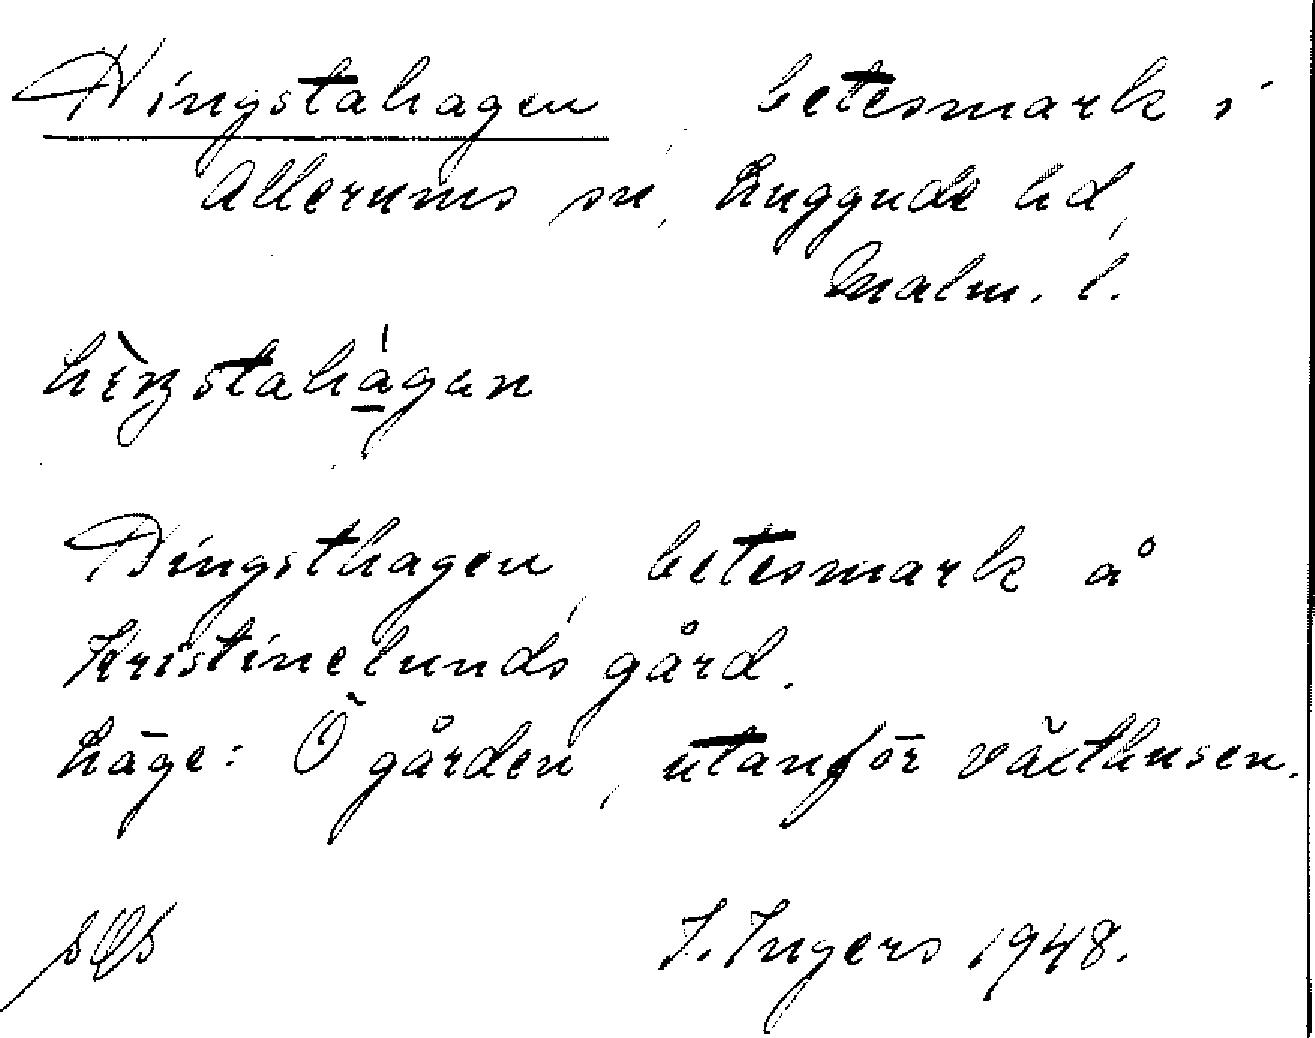 Hingstahagen betesmark i
Allerums sn, Luggude hd,
Malm. l.
Hingsthagen, betesmark å
Kristinelunds gård.
Läge: Ö gården, utanför växthusen.
I. Ingers 1948.